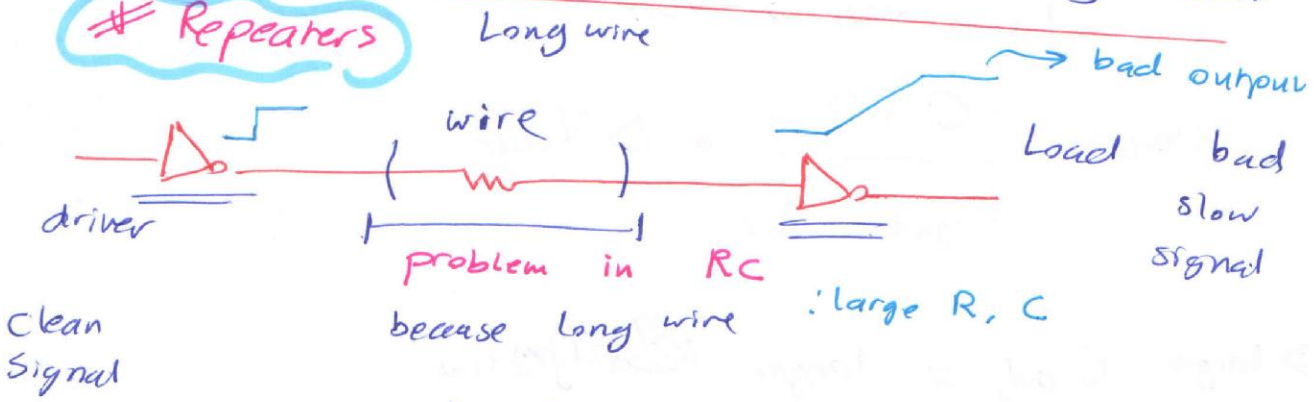 # Repeaters Long wire
bad output
wire
Load bad
slow
signal
driver
problem in RC
: large R, C
Clean
Signal
beceuse long wire